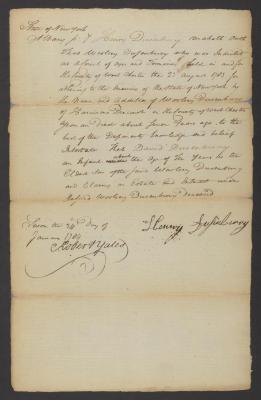 State of New York
Albany ss Henry Dusenbury maketh Oath
That Woolsey Dusenbury who was Indicted
as a Court of Oyer and Terminer held in and for
the County of West Chester the 2d August 1783 for
adhering to the Enemies of the State of New York by
the Name and Addition of Woolsey Dusenbury
of Harrisons Precinct in the County of West Chester
Yeoman Died about four Years ago to the
best of the Deponents knowledge and belief
Intestate That David Dusenbury
an Infant about the Age of Ten Years is the
Eldest Son of the said Woolsey Dusenbury
and Claims an Estate and Interest under
Woolsey Dusenbury deceased
Sworn the 24th Day of
January 1784
Henry Dusenbury
Robert Yates